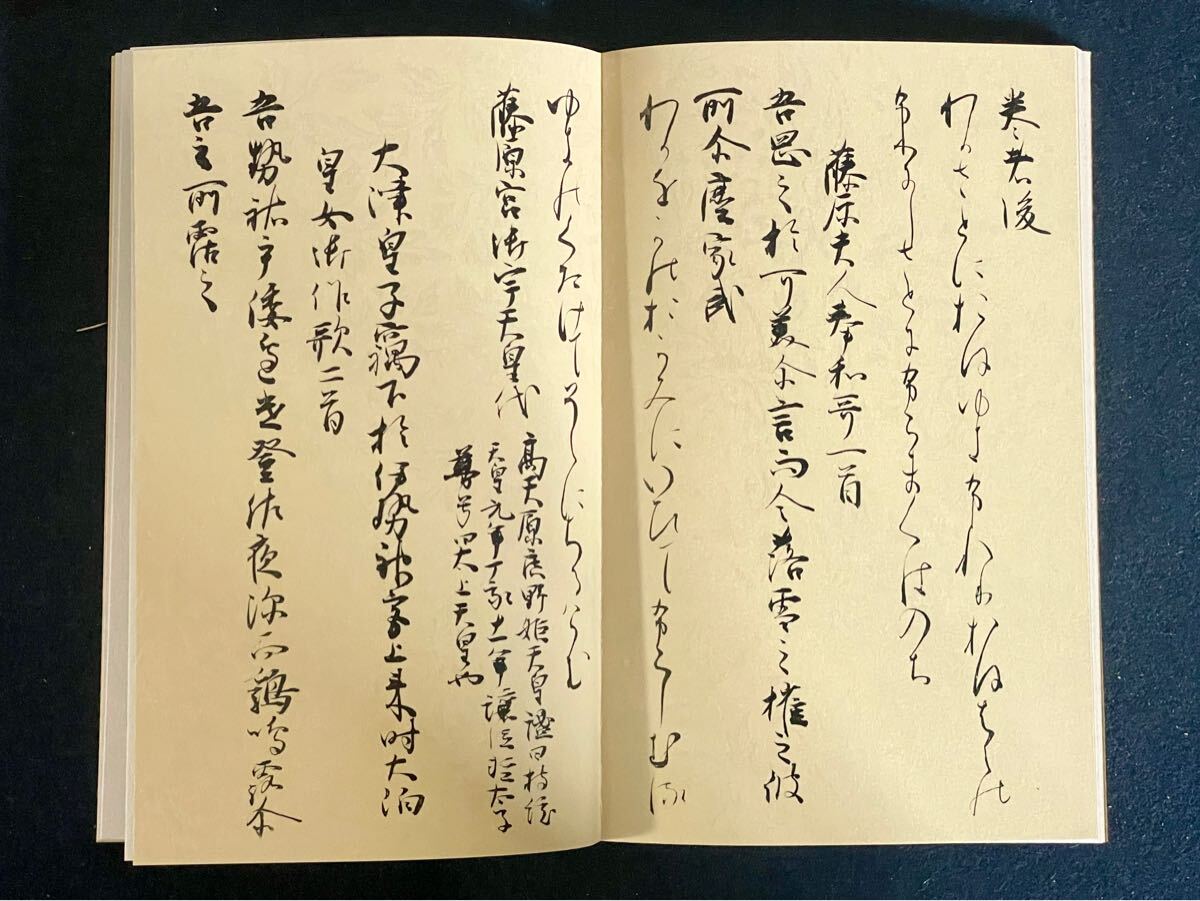 巻者後
わかさとにおほゆきふれりおほはらの
ふりにしさとにふらまくはのち
藤原夫人奉和哥一首
吾岡之於可美尓言而令落雪之摧之彼
所尓塵家武
わかをかのおかみにいひてふらしむる
ゆきのくたけしそこにちりけむ
藤原宮御宇天皇代
高天原廣野姫天皇謚曰持統
天皇元年丁亥十一年譲位軽太子
尊号曰太上天皇也
大津皇子竊下於伊勢神宮上来時大泊
皇女御作歌二首
吾勢祜乎倭邊遣登佐夜深而鶏鳴露尓
吾立所霑之